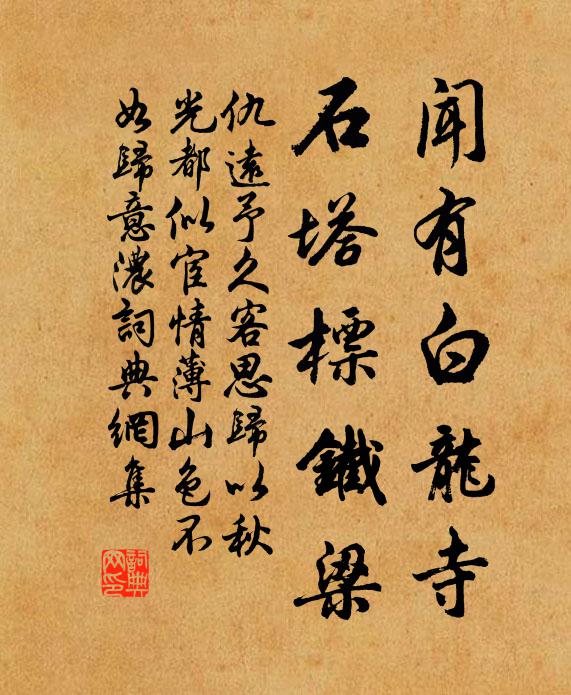 聞有白龍寺
石塔標鐵梁
仇遠予久客思歸以秋
光都似宦情薄山色不
如歸意濃詞典網集
詞典網印